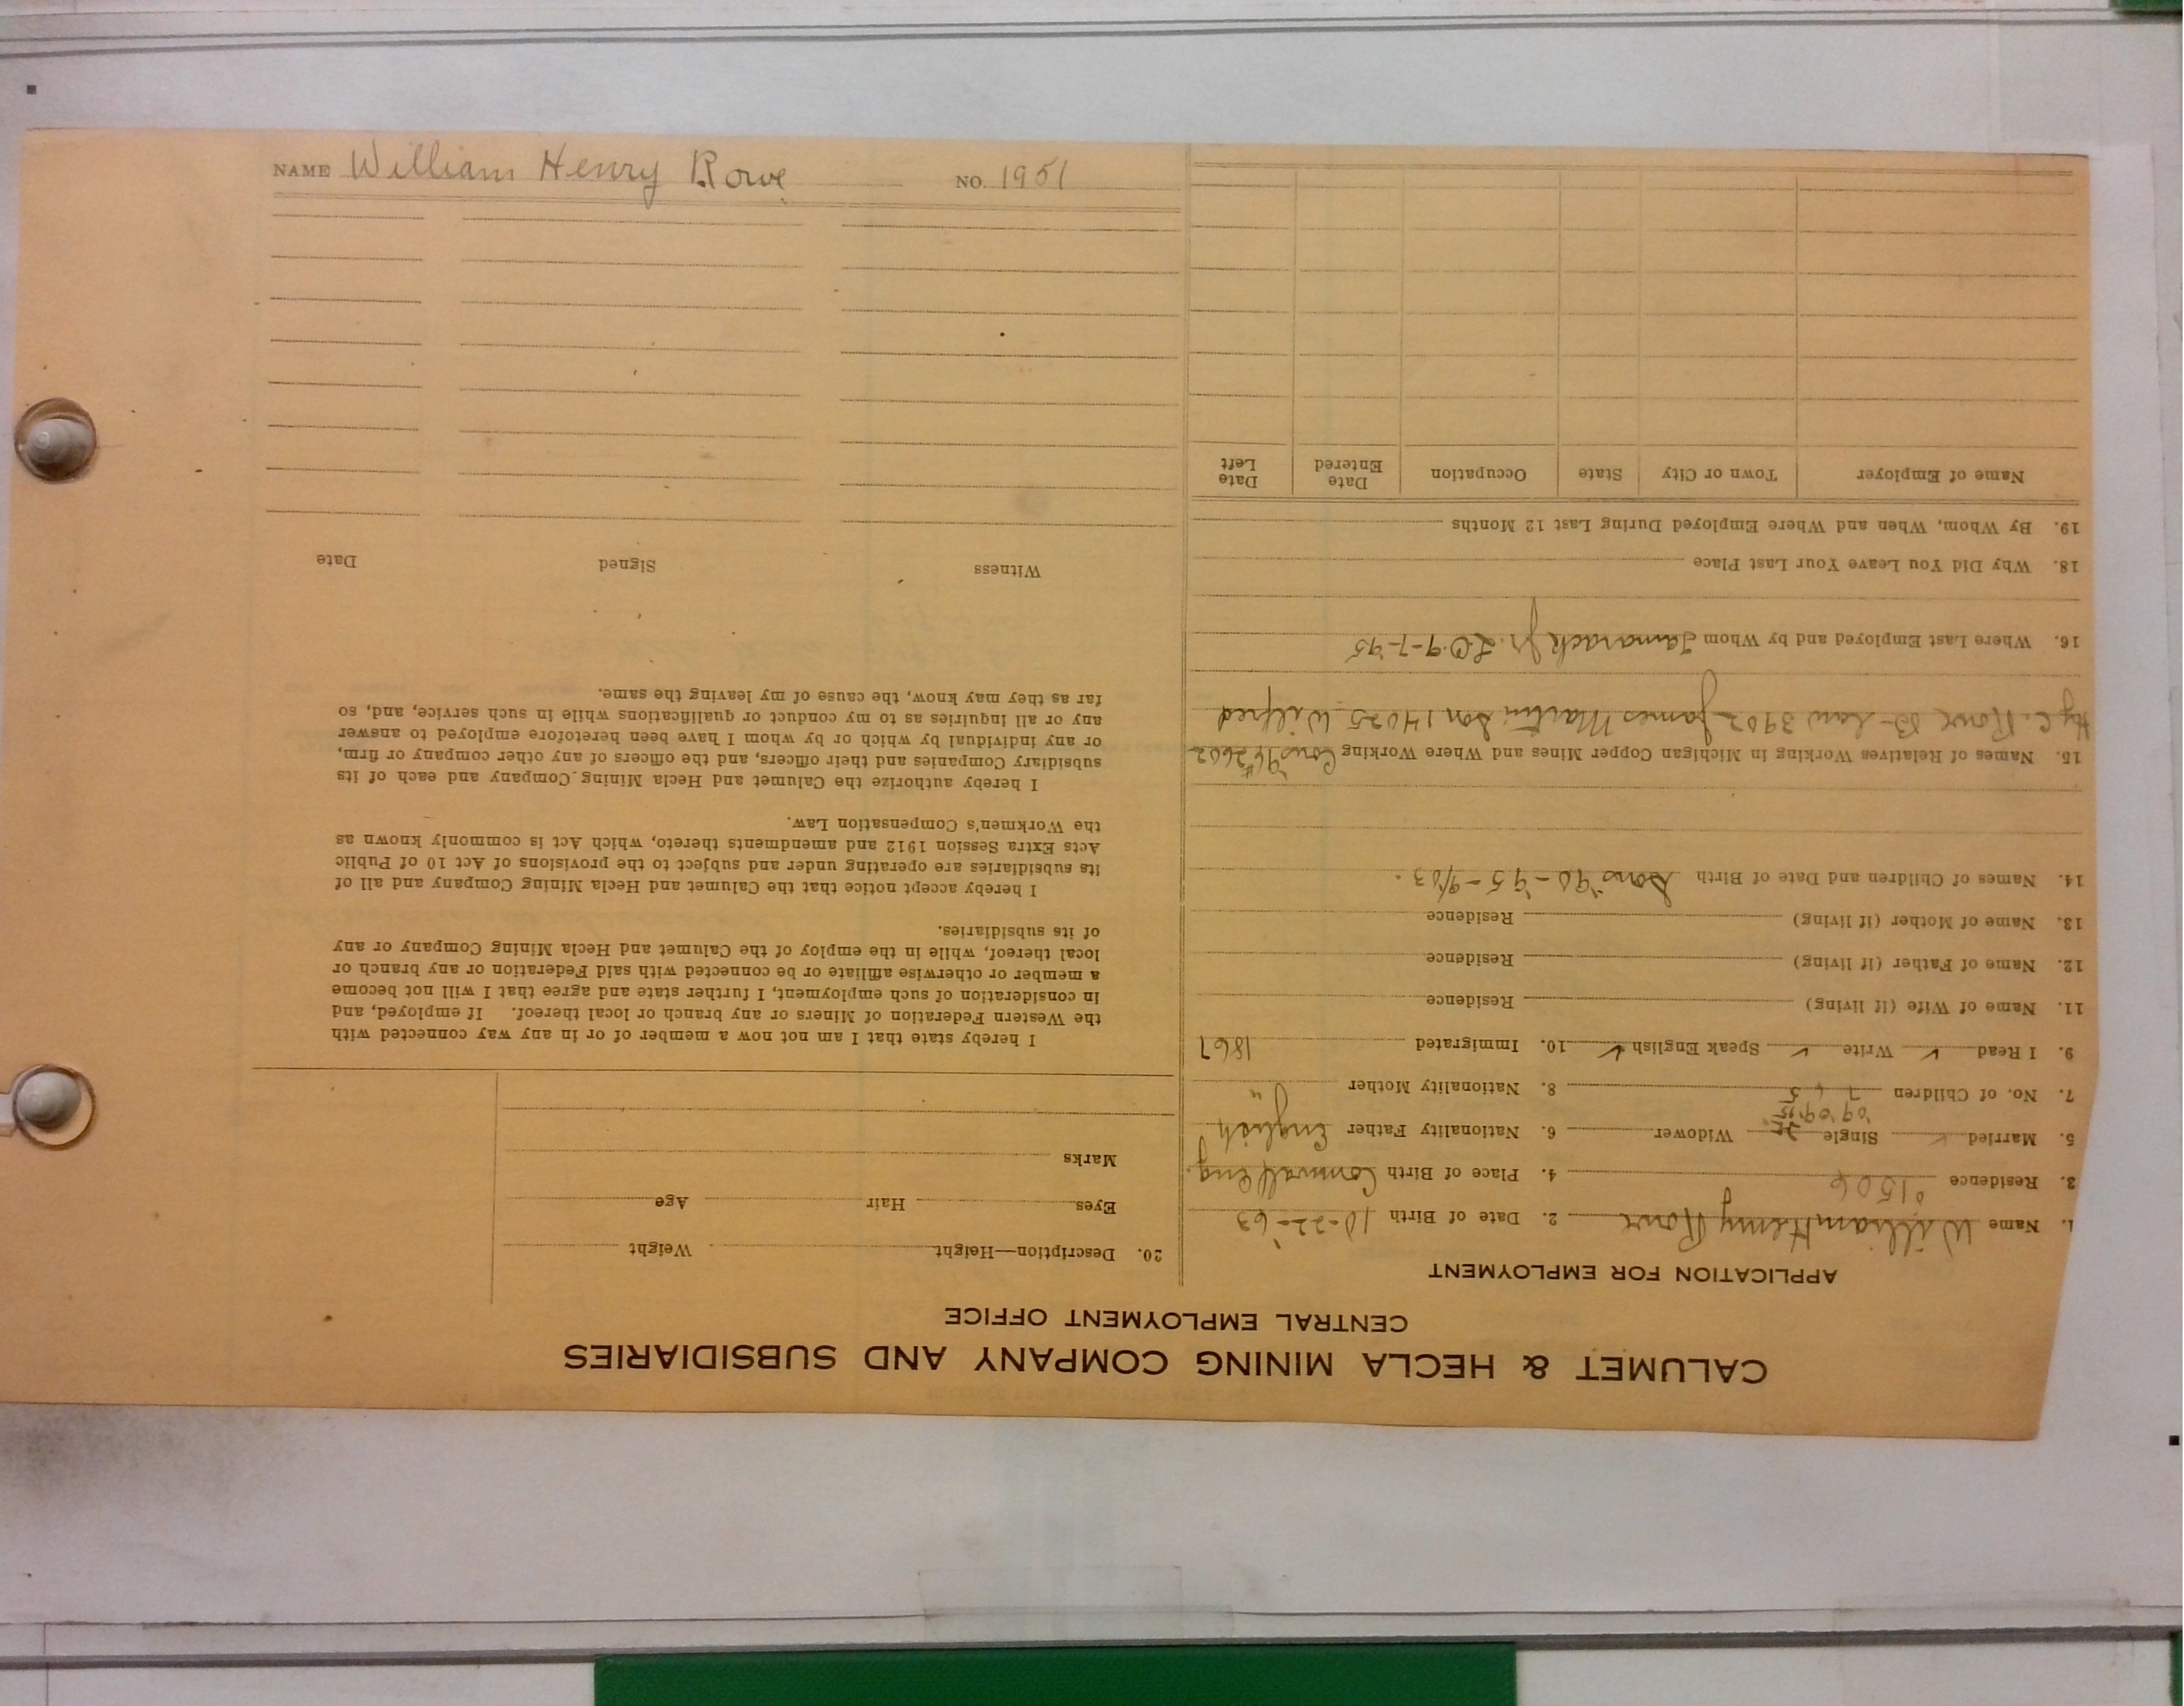 CALUMET & HECLA MINING COMPANY AND SUBSIDIARIES
CENTRAL EMPLOYMENT OFFICE
APPLICATION FOR EMPLOYMENT
1. Name William Henry Rowe 2. Date of Birth 10-22-'63
3. Residence 1506 4. Place of Birth Cornwall Eng
5. Married ✓ Single Widower 6. Nationality Father English
'09 '09 '15
7. No. of Children 7 6 5 8. Nationality Mother "
9. I Read ✓ Write ✓ Speak English ✓ 10. Immigrated 1867
11. Name of Wife (if living) Residence
12. Name of Father (if living) Residence
13. Name of Mother (if living) Residence
14. Names of Children and Date of Birth Sons '90-'95-9/03.
15. Names of Relatives Working in Michigan Copper Mines and Where Working #2602
Hy C. Rowe B-law 3902 James Martin Son 14025 Wilfred
16. Where Last Employed and by Whom Tamarack Jr. 9-7-95
18. Why Did You Leave Your Last Place
19. By Whom, When and Where Employed During Last 12 Months
Name of Employer Town or City State Occupation Date Entered Date Left
20. Description—Height Weight
Eyes Hair Age
Marks
I hereby state that I am not now a member of or in any way connected with
the Western Federation of Miners or any branch or local thereof. If employed, and
in consideration of such employment, I further state and agree that I will not become
a member or otherwise affiliate or be connected with said Federation or any branch or
local thereof, while in the employ of the Calumet and Hecla Mining Company or any
of its subsidiaries.
I hereby accept notice that the Calumet and Hecla Mining Company and all of
its subsidiaries are operating under and subject to the provisions of Act 10 of Public
Acts Extra Session 1912 and amendments thereto, which Act is commonly known as
the Workmen's Compensation Law.
I hereby authorize the Calumet and Hecla Mining Company and each of its
subsidiary Companies and their officers, and the officers of any other company or firm,
or any individual by which or by whom I have been heretofore employed to answer
any or all inquiries as to my conduct or qualifications while in such service, and, so
far as they may know, the cause of my leaving the same.
Witness Signed Date
NAME William Henry Rowe NO. 1951